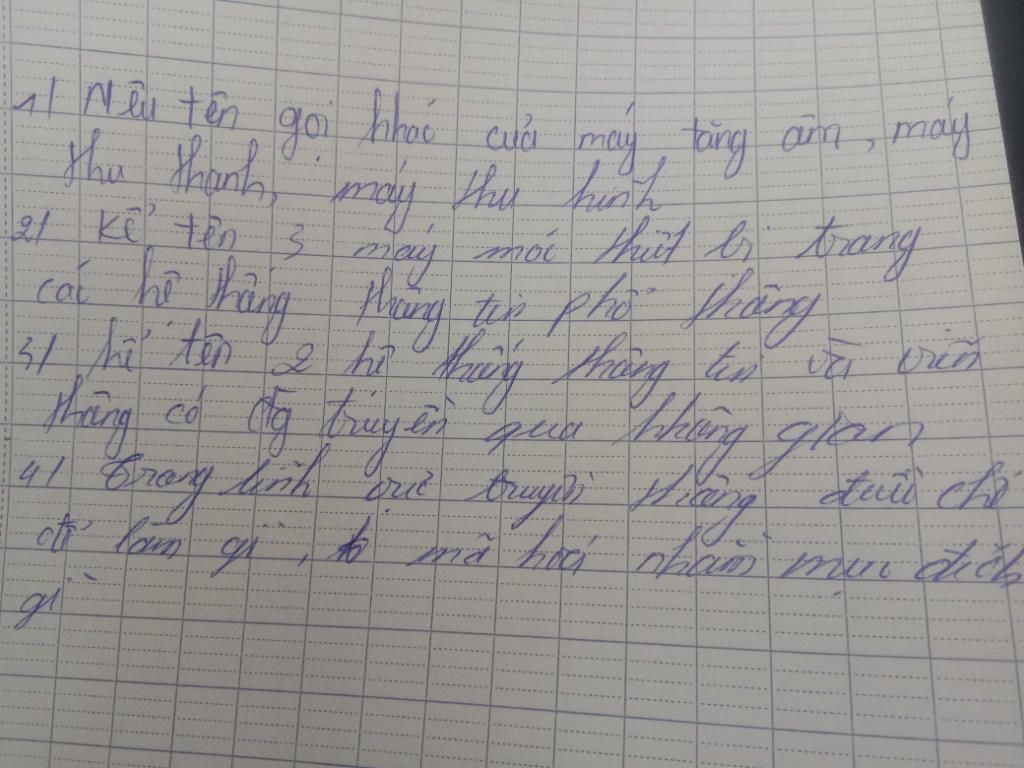 1/ Nêu tên gọi khác của máy tăng âm, máy
thu thanh, máy thu hình
2/ Kể tên 3 máy móc thiết bị trong
các hệ thống thông tin phổ thông
3/ kể tên 2 hệ thống thông tin và viễn
thông có truyền qua không gian
4/ Trong lĩnh vực truyền thông chế
để làm gì, mã hoá nhằm mục đích
gì